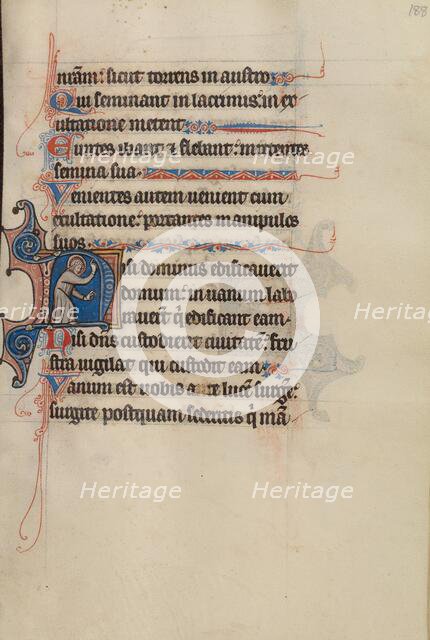 188
nr̄am: sicut torrens in austro
Qui seminant in lacrimis: in ex
ultatione metent
Euntes ibant & flebant: mittentes
semina sua.
Venientes autem venient cum
exultatione: portantes manipulos
suos.
Nisi dominus edificaverit
domum: in vanum labo
raverunt q̇ edificant eam
Nisi dn̄s custodierit civitatē: fru
stra vigilat qui custodit eam
Vanum est vobis ante lucē surg̃e:
surgite postquam sederitis q̇ mā
Heritage
Heritage Heritage
Heritage Heritage
Heritage Heritage